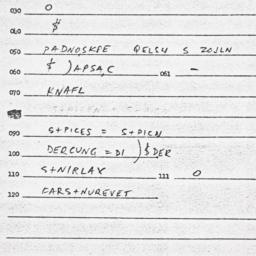 030 0
040 $
050 PADNOSKPE QELSU S ZOJLN
060 $ )APSA,C 061 -
070 KNAFL
090 S+PICES = S+PICN
100 DERCUNG = DI )$DER
110 S+NIRLAX 111 0
120 EARS+NUREVET